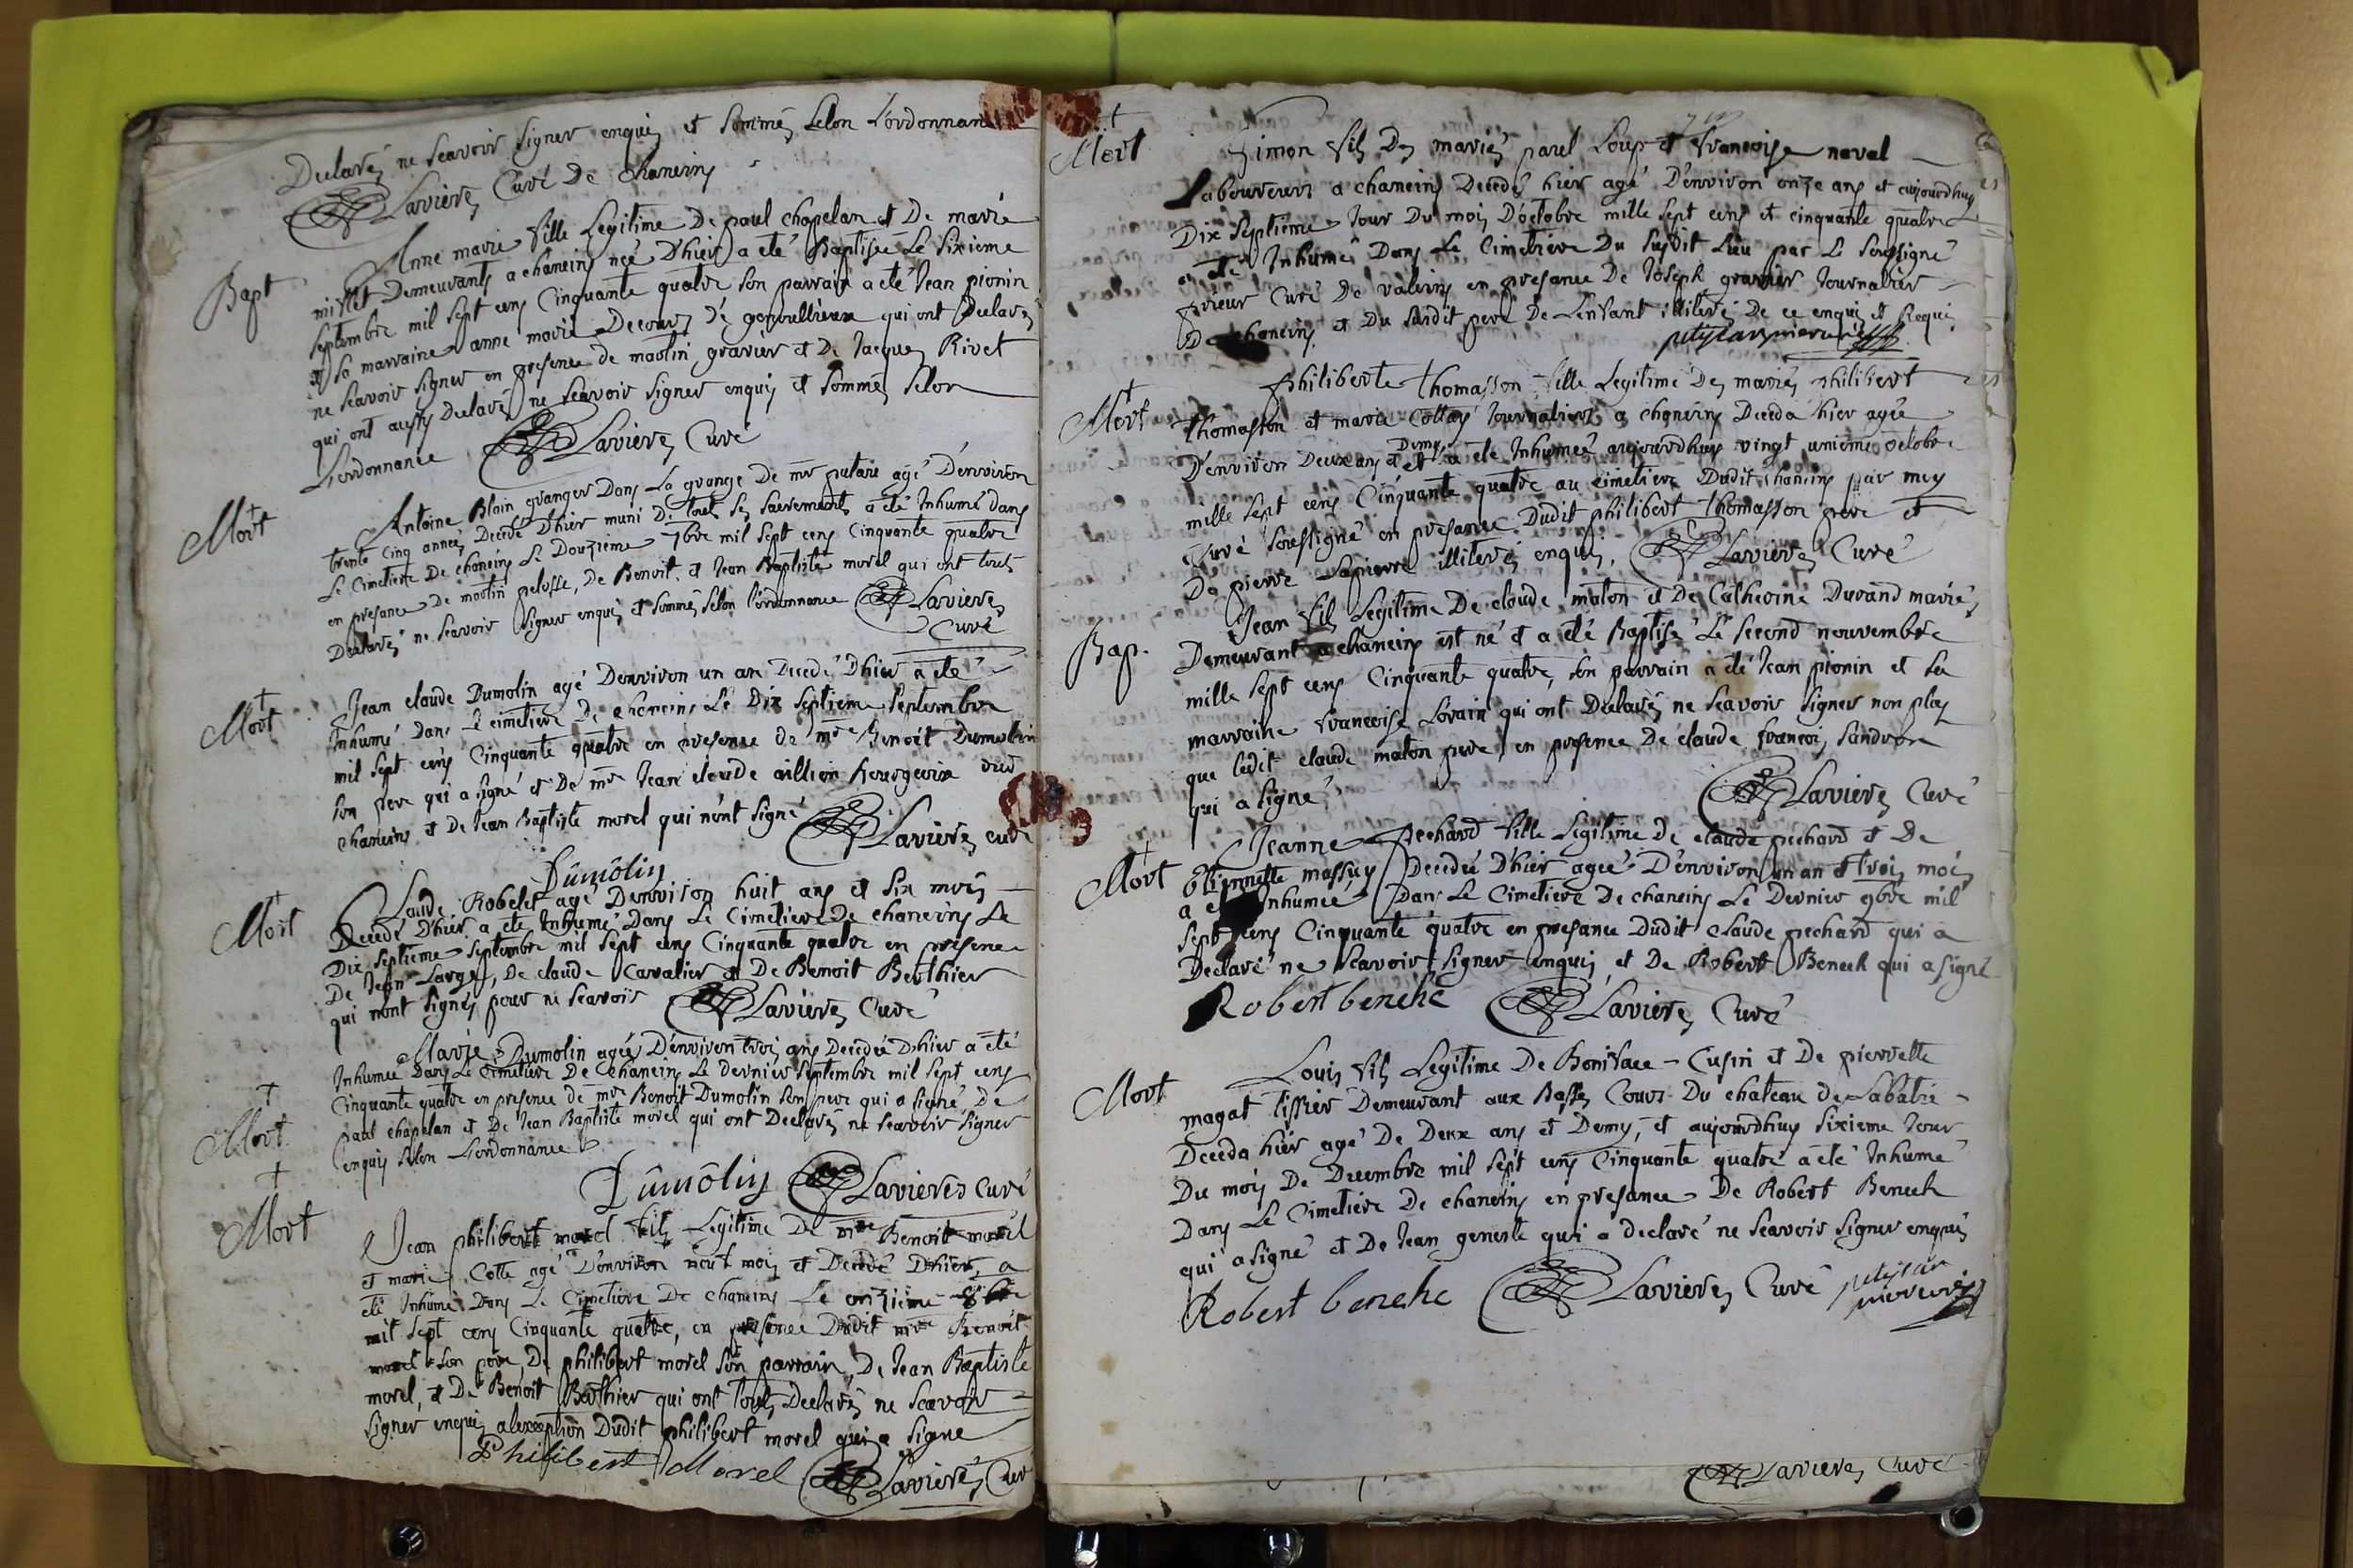 Declarés ne Scavoir Signer enquis et Sommés Selon L'ordonnance
Lavieres Curé De chaneins
Bapt
Anne marie fille Legitime De paul chapelan et De marie
millet Demeurants a chaneins née D'hier a eté Baptisée Le Sixieme
Septembre mil sept cens Cinquante quatre Son parrain a eté Jean pionin
et Sa marraine anne marie Decours de genoullieux qui ont Declarés
ne Scavoir Signer en presence de martin gravier et De Jacques Rivet
qui ont aussy Declarés ne Scavoir Signer enquis et Sommés Selon
L'ordonnance Lavieres Curé
Mort
Antoine Blain granger Dans La grange De mr agé D'environ
trente Cinq années Decedé D'hier muni De tout Ses Sacrements a eté Inhumé dans
Le Cimetiere De chaneins Le Douzieme 7bre mil Sept cens Cinquante quatre
en presance De martin pelosse, De Benoit et Jean Baptiste morel qui ont touts
Declarés ne Scavoir Signer enquis et Sommés Selon l'ordonnance Lavieres
Curé
Mort
Jean claude Dumolin agé D'environ un an Decedé D'hier a eté
Inhumé Dans Le cimetiere De chaneins Le Dix Septieme Septembre
mil Sept cens Cinquante quatre en presence de mre Benoit Dumolin
Son pere qui a signé et De mre Jean claude aillion Bourgeoix
chaneins et De Jean Baptiste morel qui n'ont Signé
Lavieres curé
Dûmôlin
Mort
Claude Robelet agé D'environ huit ans et Six mois
Decedé D'hier a eté Inhumé Dans Le Cimetiere De chaneins Le
Dix Septieme Septembre mil Sept cens Cinquante quatre en presence
De Jean Large, De claude Cavalier et De Benoit Berthier
qui n'ont Signés pour ne Scavoir Lavieres Curé
Mort
Marie Dumolin agée D'environ trois ans Decedée D'hier a eté
Inhumée Dans Le Cimetiere De chaneins Le dernier Septembre mil Sept cens
Cinquante quatre en presence de mre Benoit Dumolin Son pere qui a signé, De
paul chapelan et De Jean Baptiste morel qui ont Declarés ne Scavoir Signer
enquis Selon L'ordonnance
Dûmôlin Lavieres curé
Mort
Jean philibert morel fils Legitime De mre Benoit morel
et marie Cotte agé D'environ neuf mois et Decedé D'hier, a
eté Inhumé Dans Le Cimetiere De chaneins Le onzieme 8bre
mil Sept cens Cinquante quatre, en presence Dudit mre Benoit
morel Son pere, De philibert morel Son parrain, De Jean Baptiste
morel, et De Benoit Berthier qui ont touts Declarés ne Scavoir
Signer enquis alexception Dudit philibert morel qui a Signé
Philibert Morel Lavieres Curé
Mort
Simon fils Des mariés paul Loup et francoise naval
Laboureurs a chaneins Decedé hier agé D'environ onze ans et aujourdhuy
Dix Septieme Jour Du mois D'octobre mille Sept cens et cinquante quatre
a eté Inhumé Dans Le Cimetiere Du Susdit Lieu par Le Soussigné
prieur Curé De valeins en presance De Joseph gravier Journalier
De chaneins et Du Susdit pere De L'enfant illiterés De ce enquis et Requis
Mort
Philiberte thomasson fille Legitime Des mariés philibert
thomasson et marie Collay Journaliers a chaneins Deceda hier agée
D'environ Deux ans et Demy et a eté Inhumée aujourdhuy vingt unieme octobre
mille Sept cens Cinquante quatre au cimetiere Dudit chaneins par moy
Curé Soussigné en presance Dudit philibert thomasson pere et
De pierre Lapierre illiterés enquis. Lavieres Curé
Bap.
Jean fils Legitime De claude maton et De Catherine Durand mariés
Demeurant a chaneins est né et a eté Baptisé Le Second nouvembre
mille Sept cens Cinquante quatre, Son parrain a eté Jean pionin et Sa
marraine francoise Lorain qui ont Declarés ne Scavoir Signer non plus
que ledit claude maton pere, en presence De claude francois Sandron
qui a Signé Lavieres Curé
Mort
Jeanne pechard fille Legitime De claude pechard et De
Etiennette massuy Decedée D'hier agée D'environ un an et trois mois
a eté Inhumée Dans Le Cimetiere De chaneins Le Dernier 9bre mil
Sept cens Cinquante quatre en presance Dudit claude pechard qui a
Declaré ne Scavoir Signer enquis et De Robert Beneck qui a signé
Robert beneke Lavieres Curé
Mort
Louis fils Legitime De Boniface Cusin et De pierrette
magat tissier Demeurant aux Basses Cours Du chateau de Labatie
Deceda hier agé De Deux ans et Demy, et aujourdhuy Sixieme Jour
Du mois De Decembre mil Sept cens Cinquante quatre a eté Inhumé
Dans Le Cimetiere De chaneins en presance De Robert Beneck
qui a signé et De Jean geneste qui a declaré ne Scavoir Signer enquis
Robert beneke Lavieres Curé
Lavieres Curé